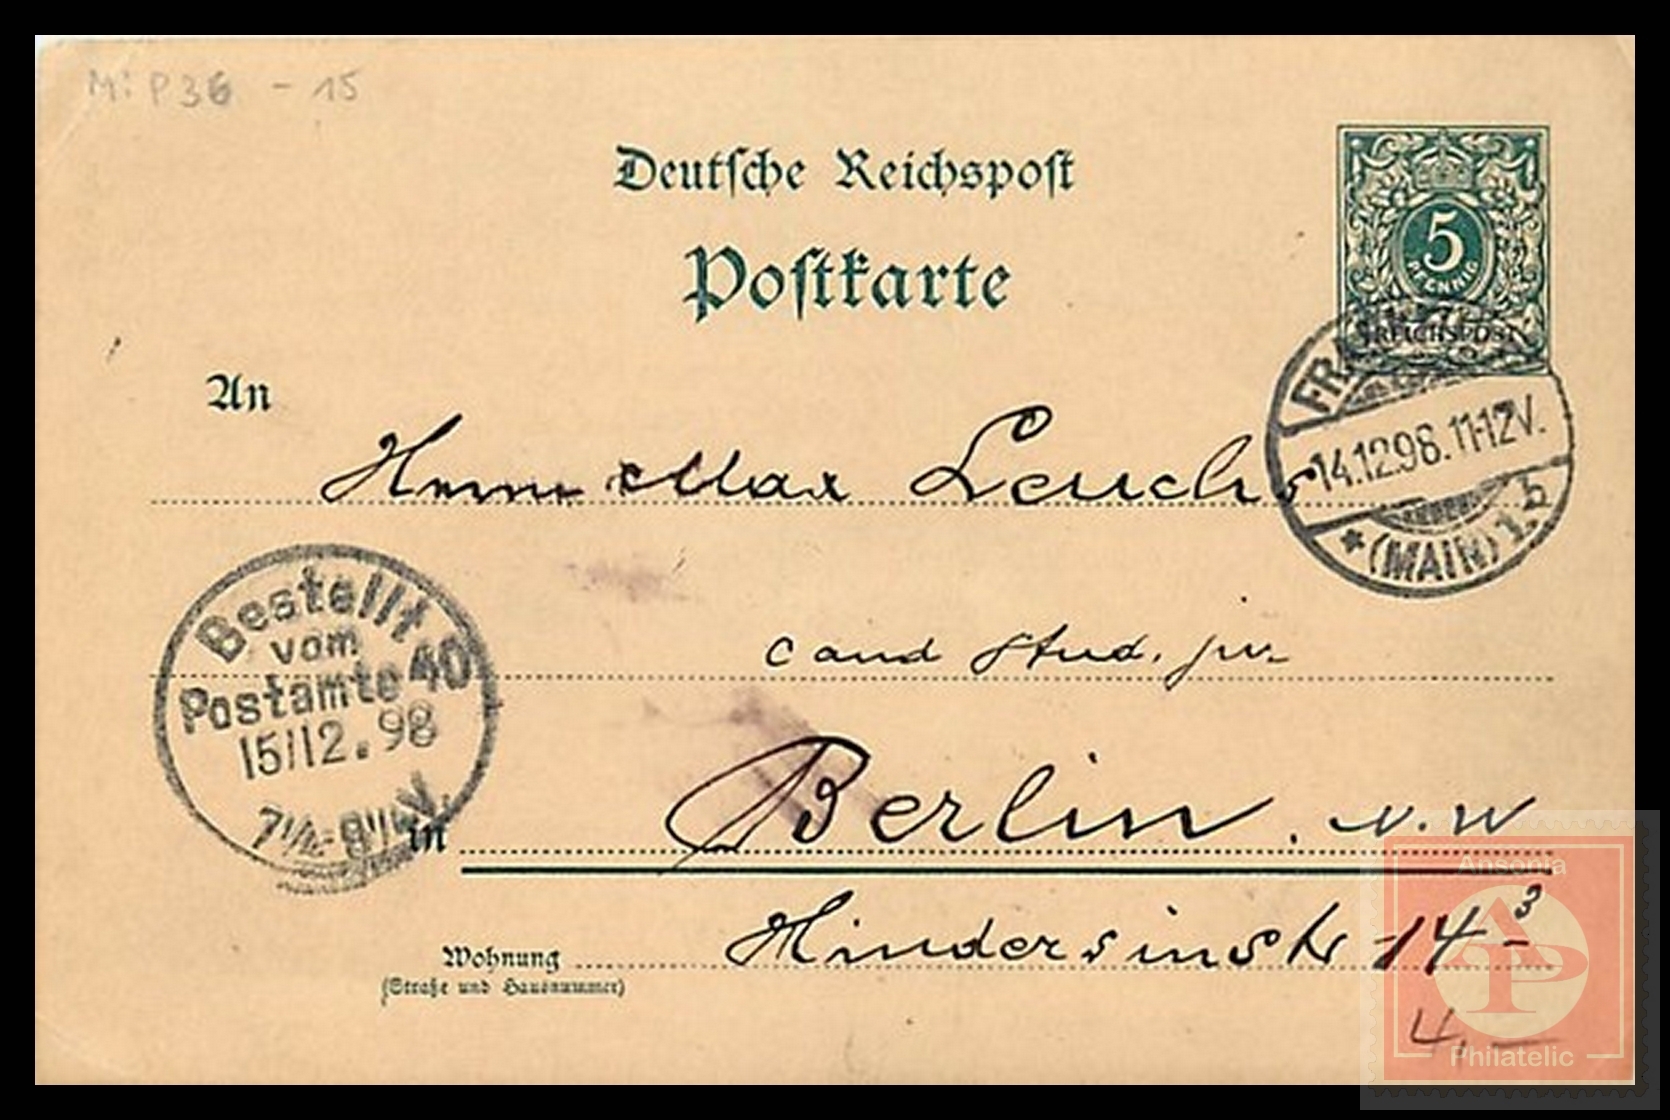 Mi P36 - 15
Deutsche Reichspost
Postkarte
5
PFENNIG
REICHSPOST
An
Herrn Max Leuchs
14.12.98.11-12V.
*(MAIN) 1.b
cand stud. jur
Bestellt
vom
Postamte 40
15/12.98
7¼-8¼V.
in Berlin. N.W
Wohnung Hindersinstr 14 - 3
(Straße und Hausnummer)
4,-
Ansonia
AP
Philatelic